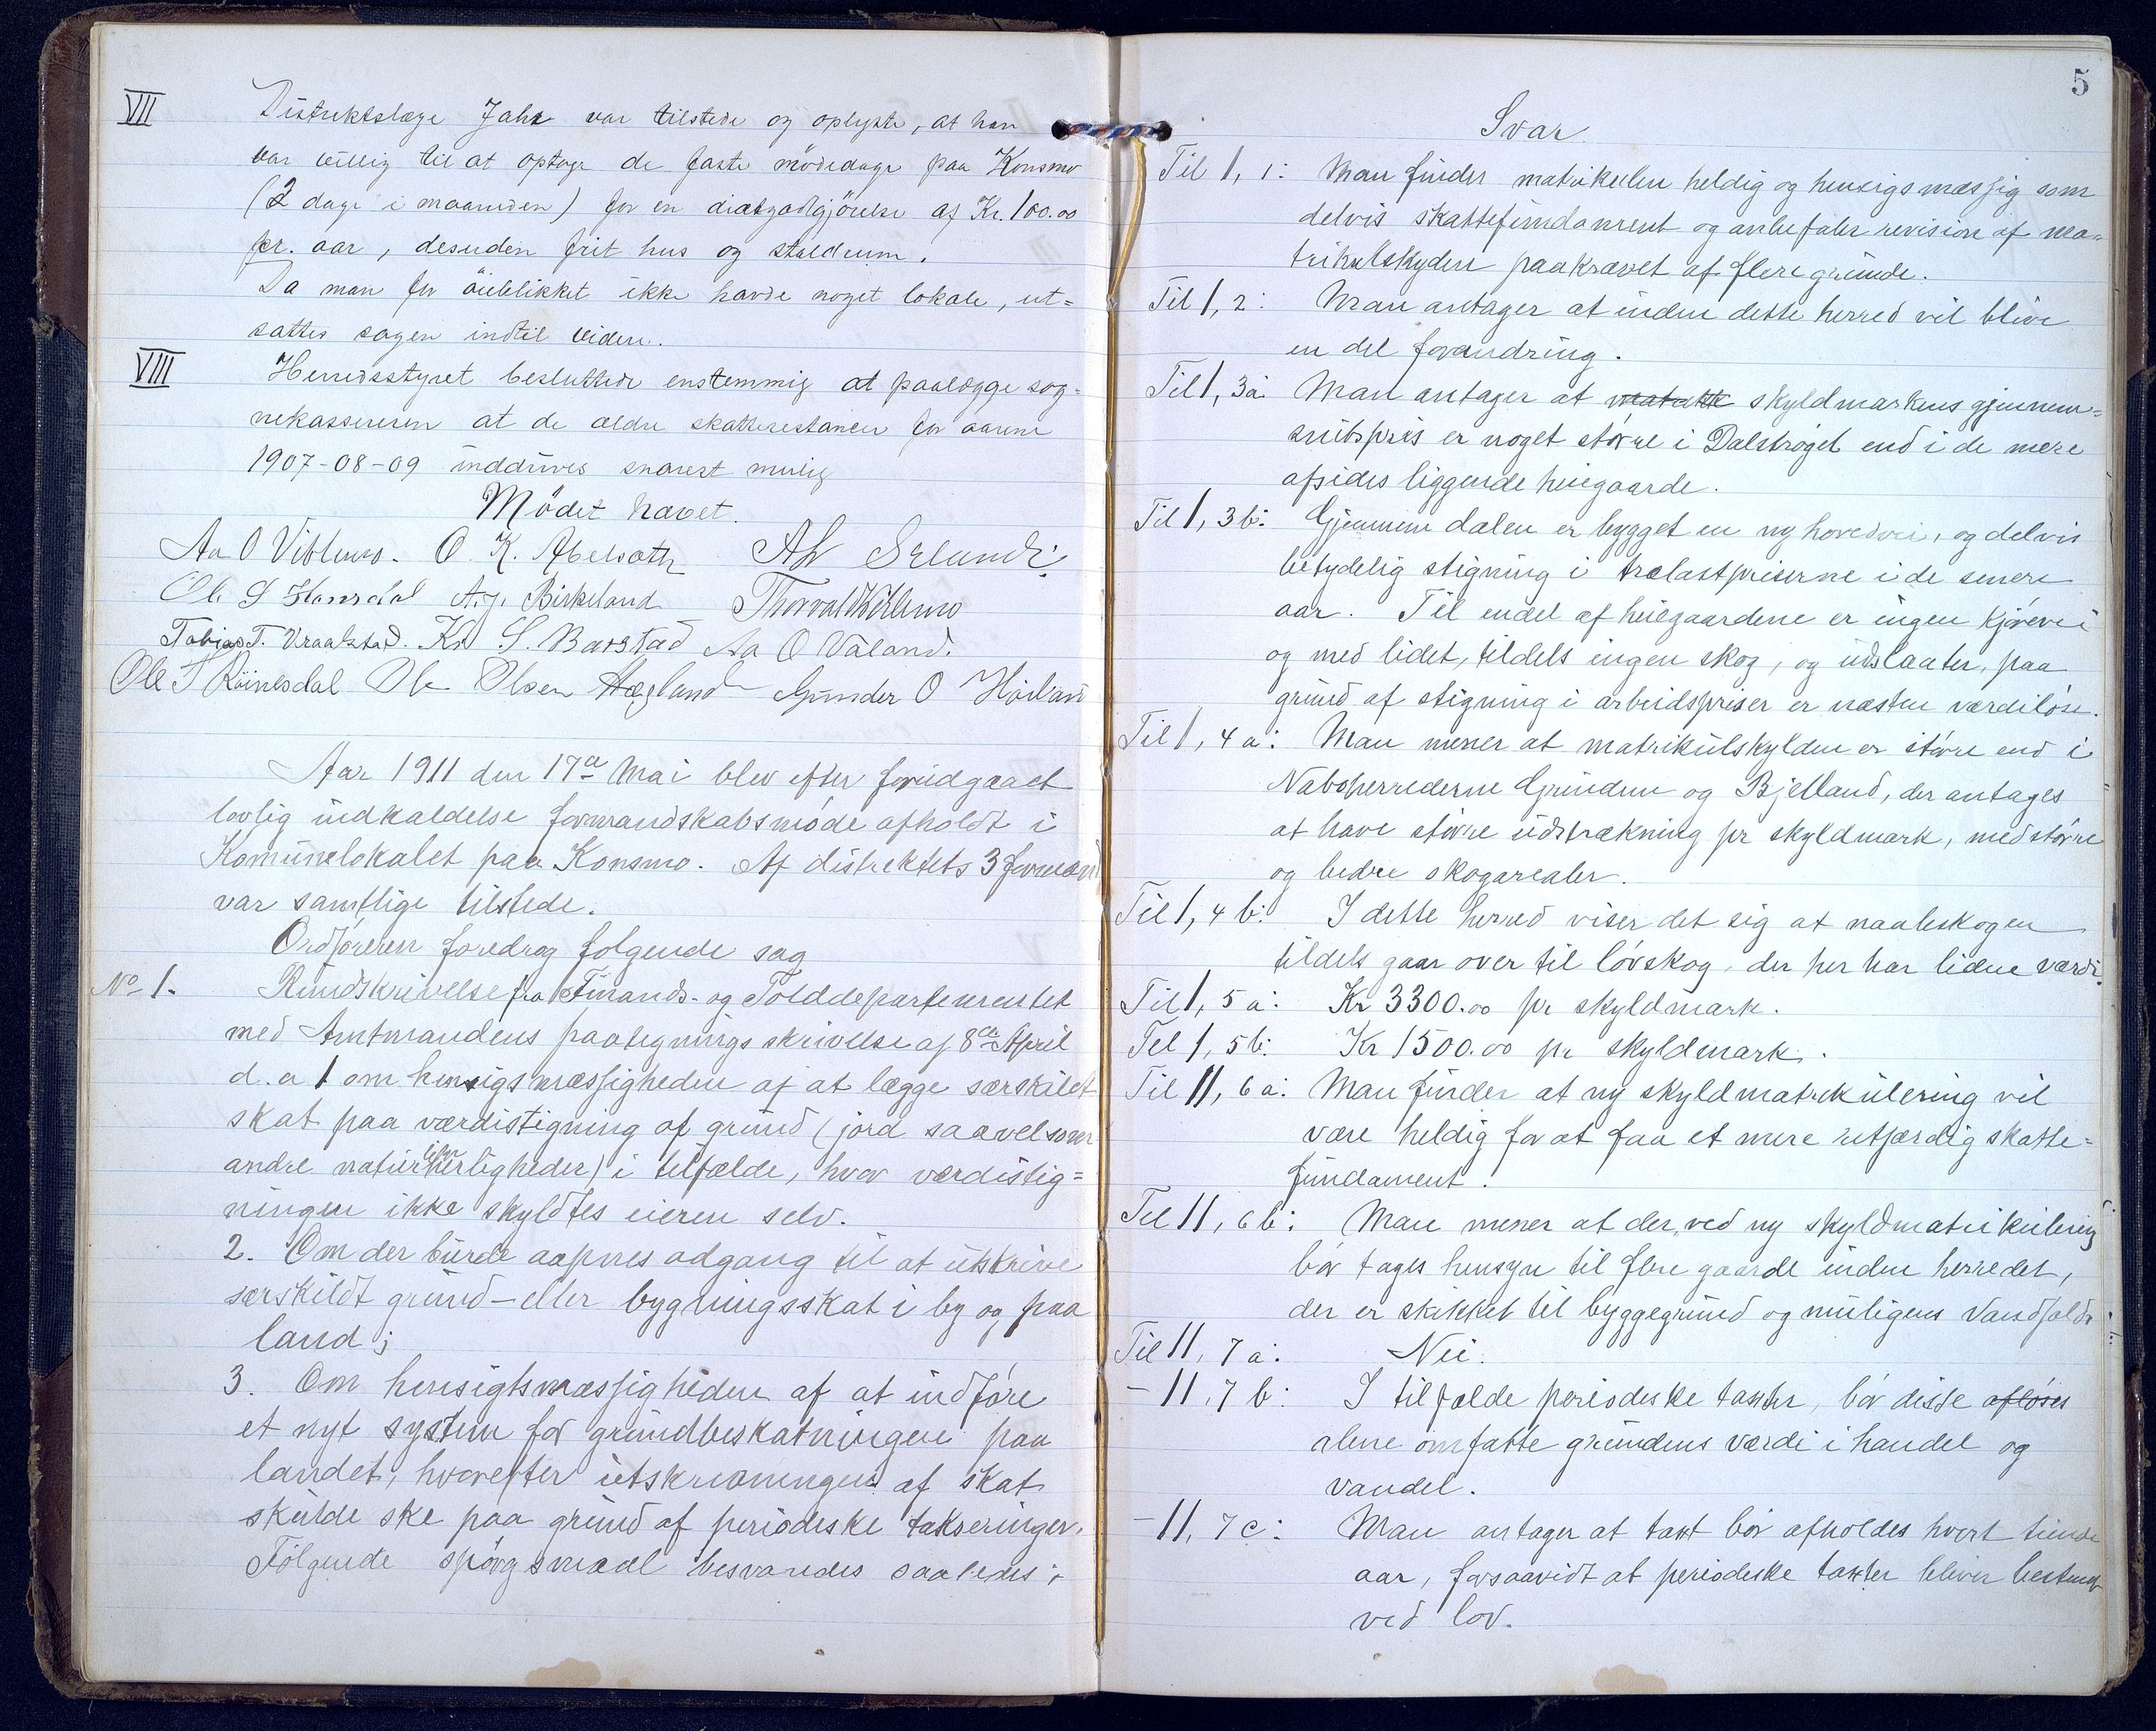 VII Distriktslæge Jahr var tilstede og oplyste, at han
var villig til at optage de faste mödedage paa Konsmo
(2 dage i maaneden) for en diætgodtgjörelse af Kr. 100.00
pr. aar, desuden frit hus og staldrum.
Da man for öieblikket ikke havde noget lokale, ut=
sattes sagen indtil videre.
VIII Herredsstyret besluttede enstemmig at paalægge sog=
nekassereren at de ældre skatterestancer for aarene
1907-08-09 inddrives snarest mulig
Mödet hævet.
Aa O Viblemo. O. K. Abelseth
Ole S Homsdal A. J. Birkeland Thorvald Viblemo
Tobias T. Vraalstad. Kr S. Barstad Aa O Valand.
Ole T Röinesdal Ole Olsen Hægland Gunder O Höiland
Aar 1911 den 17de Mai blev efter forudgaaet
lovlig indkaldelse formandskabsmöde afholdt i
Komunelokalet paa Konsmo. Af distriktets 3 formænd
var samtlige tilstede.
Ordföreren foredrog fölgende sag
No 1. Rundskrivelse fra Finands- og Tolddepartementet
med Amtmandens paategningsskrivelse af 8de April
d. a 1 om hensigsmæssigheden af at lægge særskilt
skat paa værdistigning af grund (jord saavelsom
andre naturherligheder) i tilfælde, hvor værdistig=
ningen ikke skyldtes eieren selv.
2. Om der burde aapnes adgang til at utskrive
særskildt grund- eller bygningsskat i by og paa
land;
3. Om hensigtsmæssigheden af at indföre
et nyt system for grundbeskatningen paa
landet, hvorefter utskrivningen af skat
skulde ske paa grund af periodeske takseringer.
Fölgende spörgsmaal besvaredes saaledes:
5
Svar
Til 1, 1: Man finder matrikulen heldig og hensigsmæssig som
delvis skattefundament og anbefaler revision af ma=
trikulskylden paakrævet af flere grunde.
Til 1, 2: Man antager at inden dette herred vil blive
en del forandring.
Til 1, 3a: Man antager at skyldmarkens gjennem=
snitspris er noget större i Dalströget end i de mere
afsides liggende heiegaarde.
Til 1, 3b: Gjennem dalen er bygget en ny hovedvei, og delvis
betydelig stigning i trælastpriserne i de senere
aar. Til endel af heiegaardene er ingen kjörevei
og med lidet, tildels ingen skog, og udslaater, paa
grund af stigning i arbeidspriser er næsten værdilöse.
Til 1, 4a: Man mener at matrikulskylden er större end i
Naboherrederne Grindum og Bjelland, der antages
at have större udstrækning pr skyldmark, med större
og bedre skogarealer.
Til 1, 4b: I dette herred viser det sig at naaleskogen
tildels gaar over til lövskog, der her har liden værdi.
Til 1, 5a: Kr 3300.00 pr skyldmark.
Til 1, 5b: Kr 1500.00 pr skyldmark.
Til 11, 6a: Man finder at ny skyldmatrikulering vil
være heldig for at faa et mere retfærdig skatte=
fundament.
Til 11, 6b: Man mener at der ved ny skyldmatrikulering
bör tages hensyn til flere gaarde inden herredet,
der er skikket til byggegrund og muligens Vandfalde.
Til 11, 7a: Nei.
- 11, 7b: I tilfælde periodeske taxter, bör disse aflöses
alene omfatte grundens værdi i handel og
vandel.
- 11, 7c: Man antager at taxt bör afholdes hvert tiende
aar, forsaavidt at periodeske taxter bliver bestemt
ved lov.